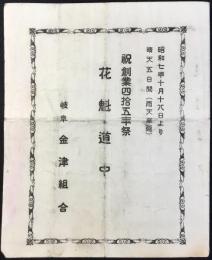 昭和七年十月十八日より
晴天五日間(雨天順延)
祝創業四拾五年祭
花魁道中
岐阜 金津組合